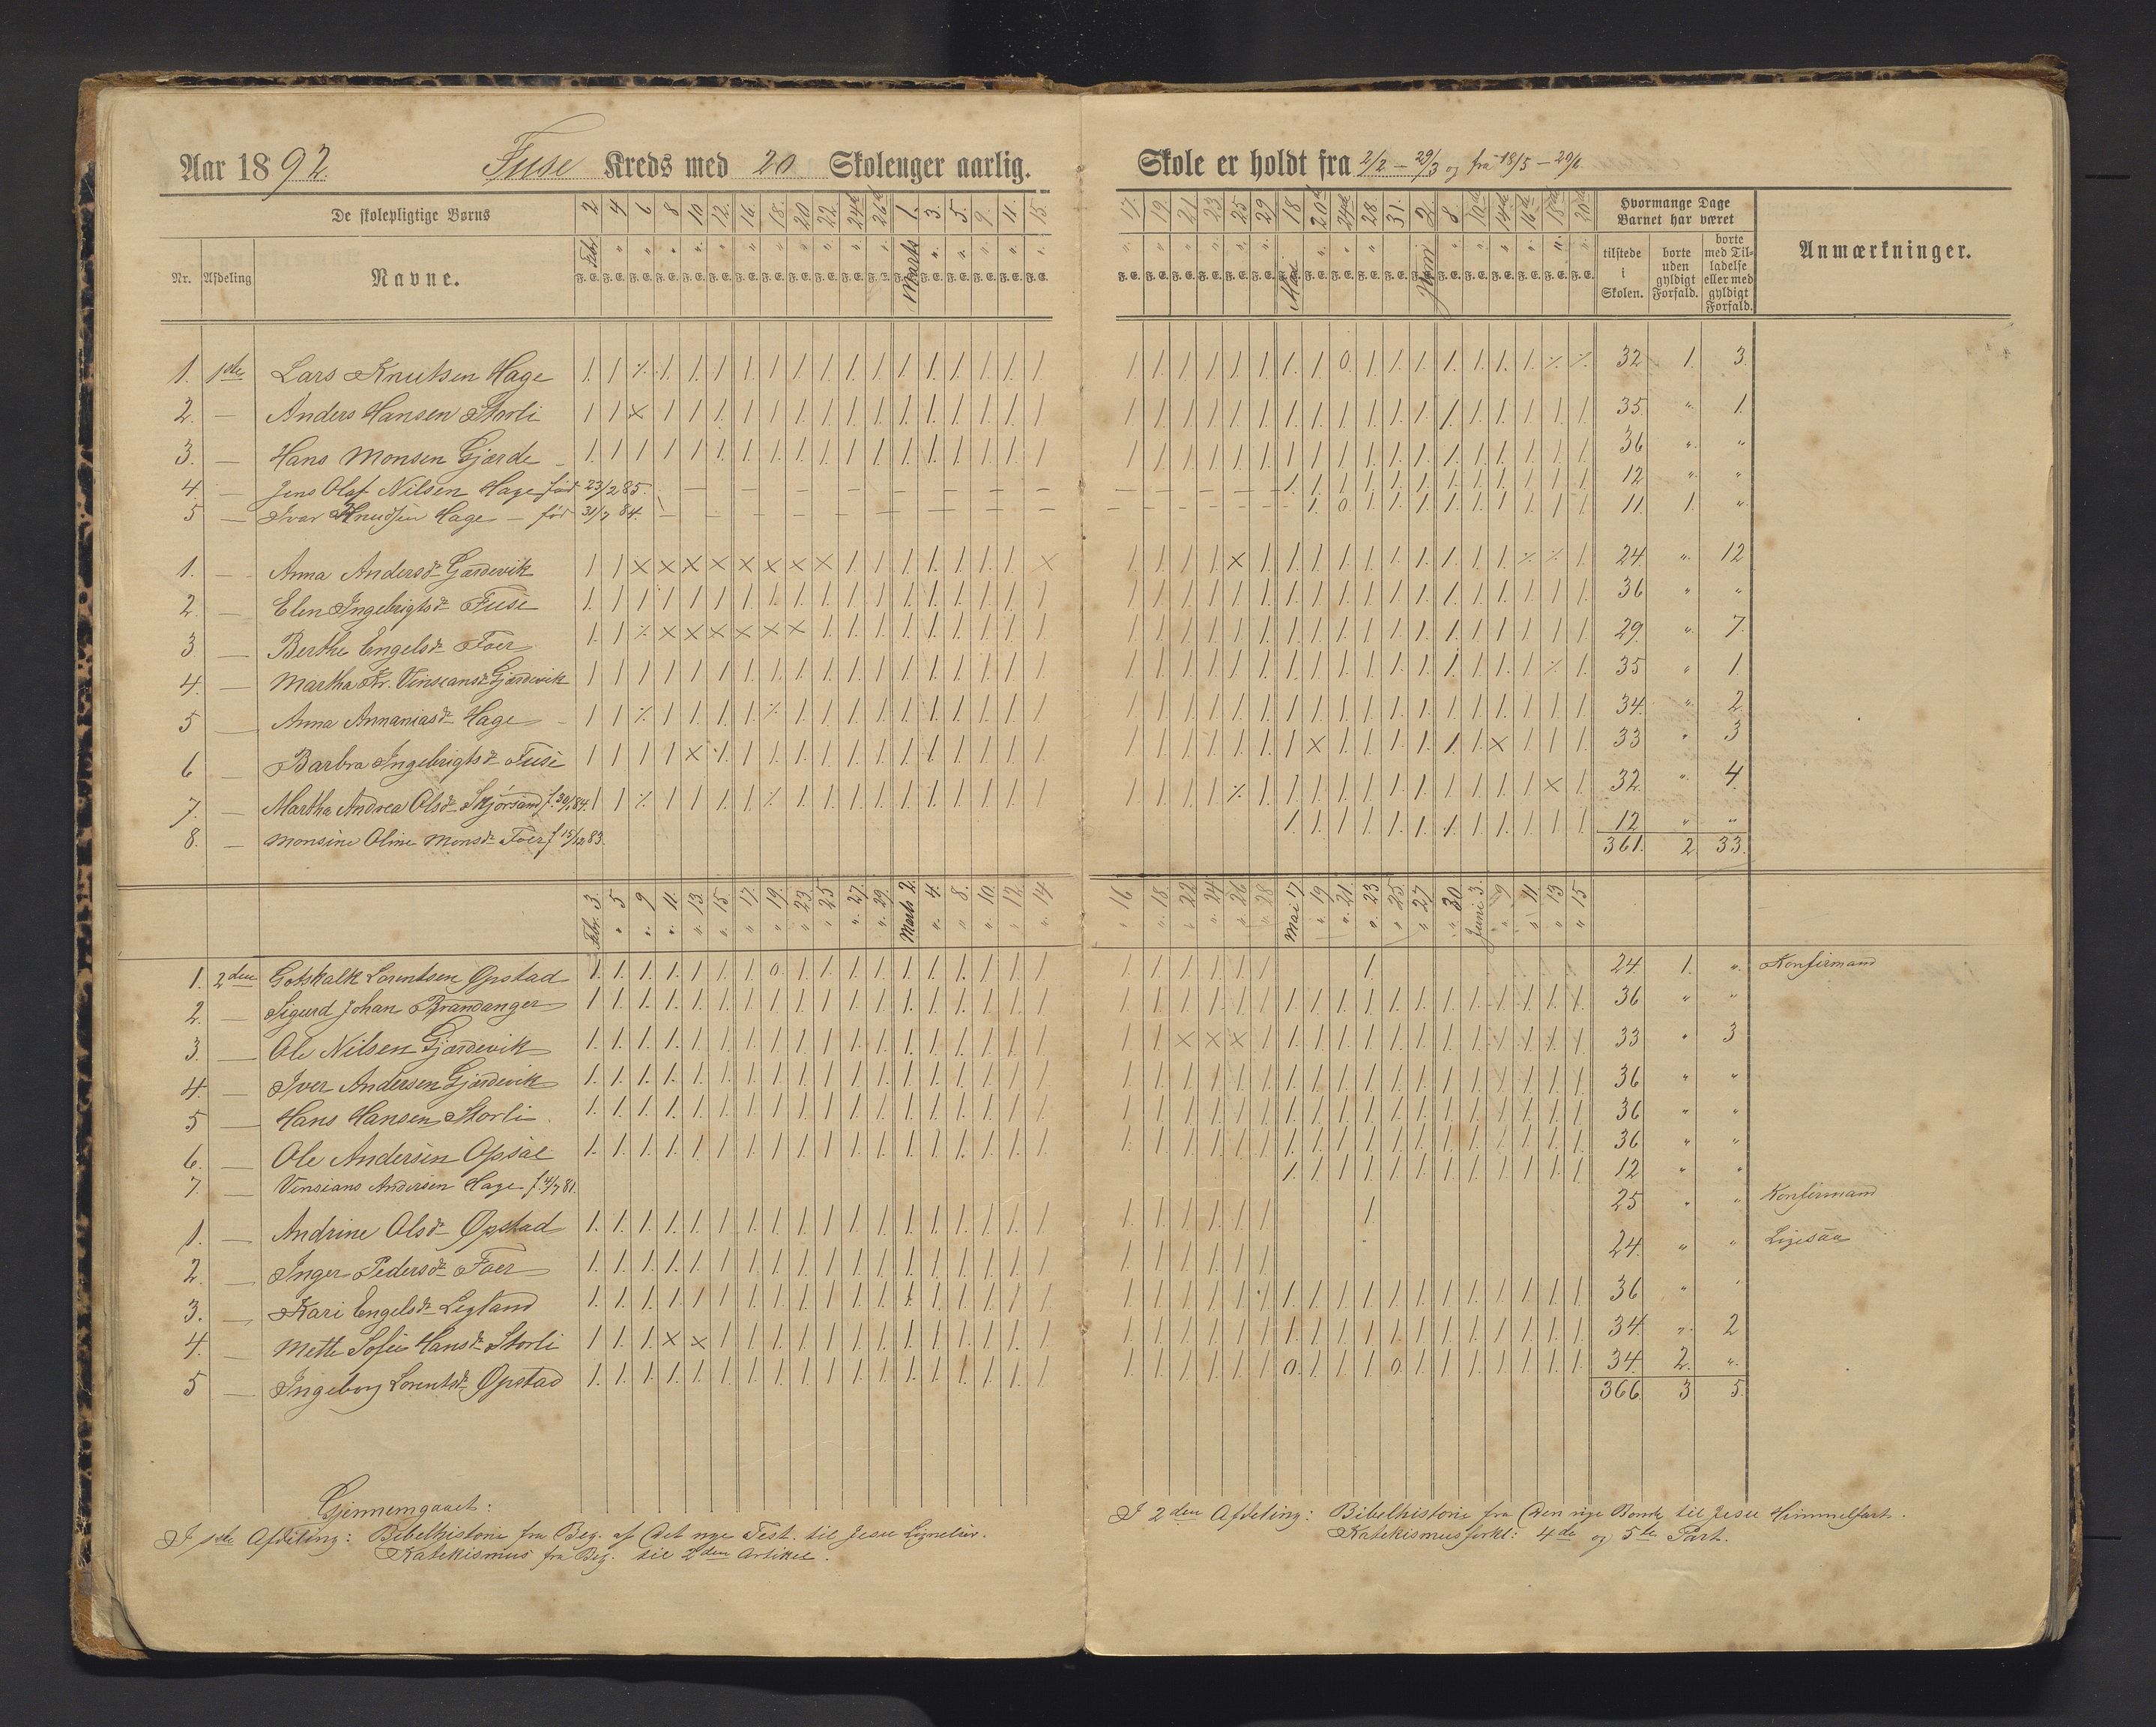 Aar 1892. Fuse Kreds med 20 Skolenger aarlig.
Skole er holdt fra 2/2 – 29/3 og fra 18/5 – 20/6
De skolepligtige Børns
Nr. Afdeling Navne.
Febr. 2. 4 6 8 10. 12. 16. 18. 20 22. 24de 26de Marts 1. 3. 5. 9. 11. 15.
17 19 21 23 25 29 Mai 18 20de 24de 28 31. Juni 2. 8. 10de 14de 16de 18de 20de
F. E.
Hvormange Dage Barnet har været
tilstede i Skolen.
borte uden gyldigt Forfald.
borte med Tilladelse eller med gyldigt Forfald.
Anmærkninger.
1. 1ste Lars Knutsen Hage 32 1. 3.
2. — Anders Hansen Storli 35 " 1.
3. — Hans Monsen Gjærde 36 " "
4. — Jens Olaf Nilsen Hage fød 23/2 85. 12 " "
5 — Ivar Knudsen Hage – fød 31/7 84. 11. 1. "
1. — Anna Andersdr Gjærdevik 24. " 12
2 — Elen Ingebrigtsdr Fuse 36 " "
3 — Berthe Engelsdr Foer 29 " 7.
4. — Martha Kr. Vinseansdr Gjærdevik 35 " 1.
5 — Anna Annaniasdr Hage 34. " 2.
6 — Barbra Ingebrigtsdr Fuse 33 " 3
7. — Martha Andrea Olsdr Skjørsand 32 " 4.
8. — Monsine Oline Monsdr Foer f 15/12 83. 12 " "
361. 2 33.
Febr. 3. 5 9 11. 13. 15. 17. 19. 23. 25 27. 29. Marts 2. 4. 8. 10. 12. 14
16. 18. 22. 24. 26. 28 Mai 17 19. 21. 23 25. 27. 30 Juni 3. 9 11. 13 15
1. 2den Gotskalk Lorentsen Opstad 24. 1. " Konfirmand
2. — Sigurd Johan Brandanger 36 " "
3. — Ole Nilsen Gjærdevik 33 " 3
4. — Iver Andersen Gjærdevik 36 " "
5 — Hans Hansen Storli 36 " "
6. — Ole Andersen Opsal 36 " "
7. — Vinsians Andersen Hage f. 4/7 81. 12 " "
1. — Andrine Olsdr Opstad 25 " " Konfirmand
2. — Inger Pedersdr Foer 24. " " Ligesaa
3. — Kari Engelsdr Legland 36 "
4. — Mette Sofie Hansdr Storli 34. " 2
5 — Ingeborg Lorentsdr Opstad 34. 2. "
366 3 5.
Gjennemgaaet:
I 1ste Afdeling: Bibelhistorie fra Beg. af Det nye Test. til Jesu Lignelser.
Katekismus fra Beg. til 2den Artikel.
I 2den Afdeling: Bibelhistorie fra Den nye Bund til Jesu Himmelfart.
Katekismusforkl: 4de og 5te Part.